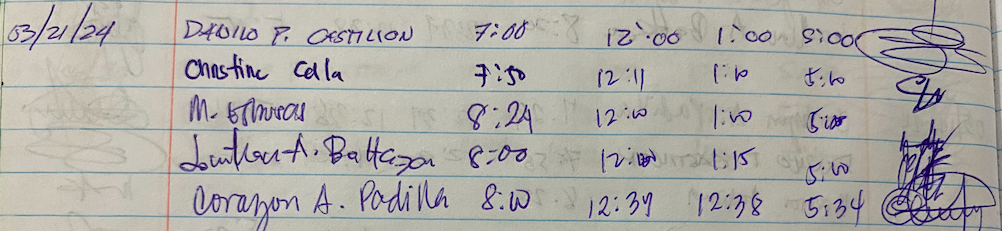 03/21/24 DANILO P. CASTILLON 7:00 12:00 1:00 5:00
Christine Cella 7:50 12:11 1:10 5:10
M. 8:24 12:10 1:10 5:00
A. Baltazar 8:00 12:00 1:15 5:10
Corazon A. Padilla 8:10 12:37 12:38 5:34